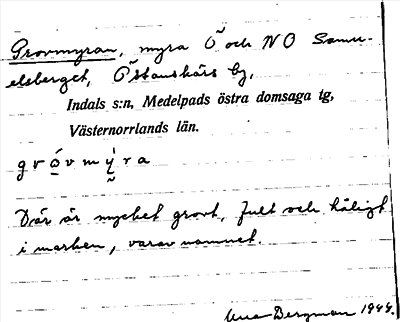 Grovmyran, myra Ö och NO Samu-
elsberget, Östanskärs by,
Indals s:n, Medelpads östra domsaga tg,
Västernorrlands län.
gvóvmýra
Där är mycket grovt, fult och håligt
i marken, varav namnet.
Bergman 1944.